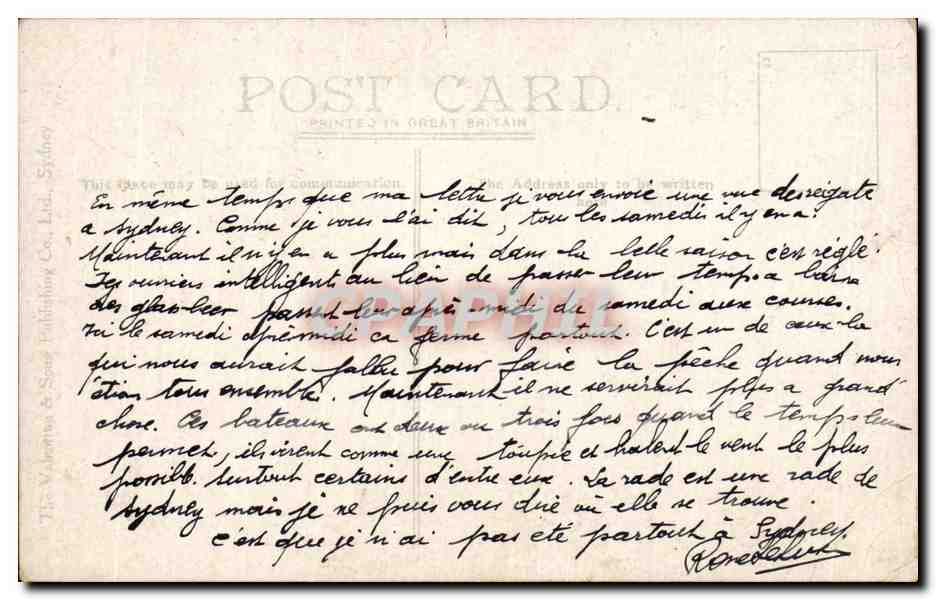 POST CARD
PRINTED IN GREAT BRITAIN
This space may be used for communication.
The Address only to be written
The Valentine & Sons Publishing Co., Ltd., Sydney
En même temps que ma lettre je vous envoie une vue des regate
a Sydney. Comme je vous l'ai dit, tous les samedis il y en a.
Maintenant il n'y en a plus mais dans la belle saison c'est réglé.
Les ouvriers intelligents au lieu de passer leur temps a boire
des glas-beer passent leur après-midi du samedi aux courses.
Ici le samedi après midi ca ferme partout. C'est un de ceux-la
qui nous aurait fallu pour faire la pêche quand nous
étion tous ensemble. Maintenant il ne servirait plus a grand
chose. Ces bateaux ont deux ou trois focs quand le temps leur
permet, ils virent comme une toupie et halent le vent le plus
possible. Surtout certains d'entre eux. La rade est une rade de
Sydney mais je ne puis vous dire où elle se trouve.
C'est que je n'ai pas eté partout à Sydney.
CPAPHIL